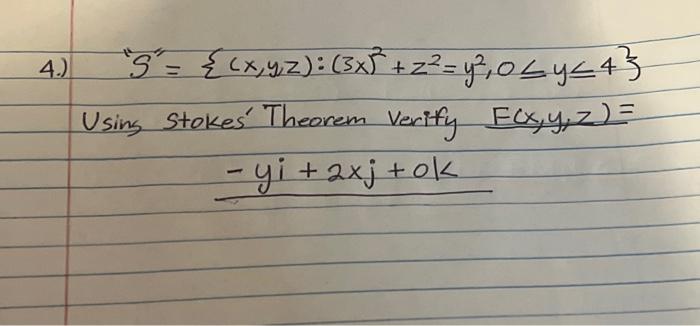 4.) "S" = {(x,y,z):(3x)² + z² = y², 0 ≤ y ≤ 4}
Using Stokes' Theorem Verify F(x,y,z) =
- yi + 2xj + 0k